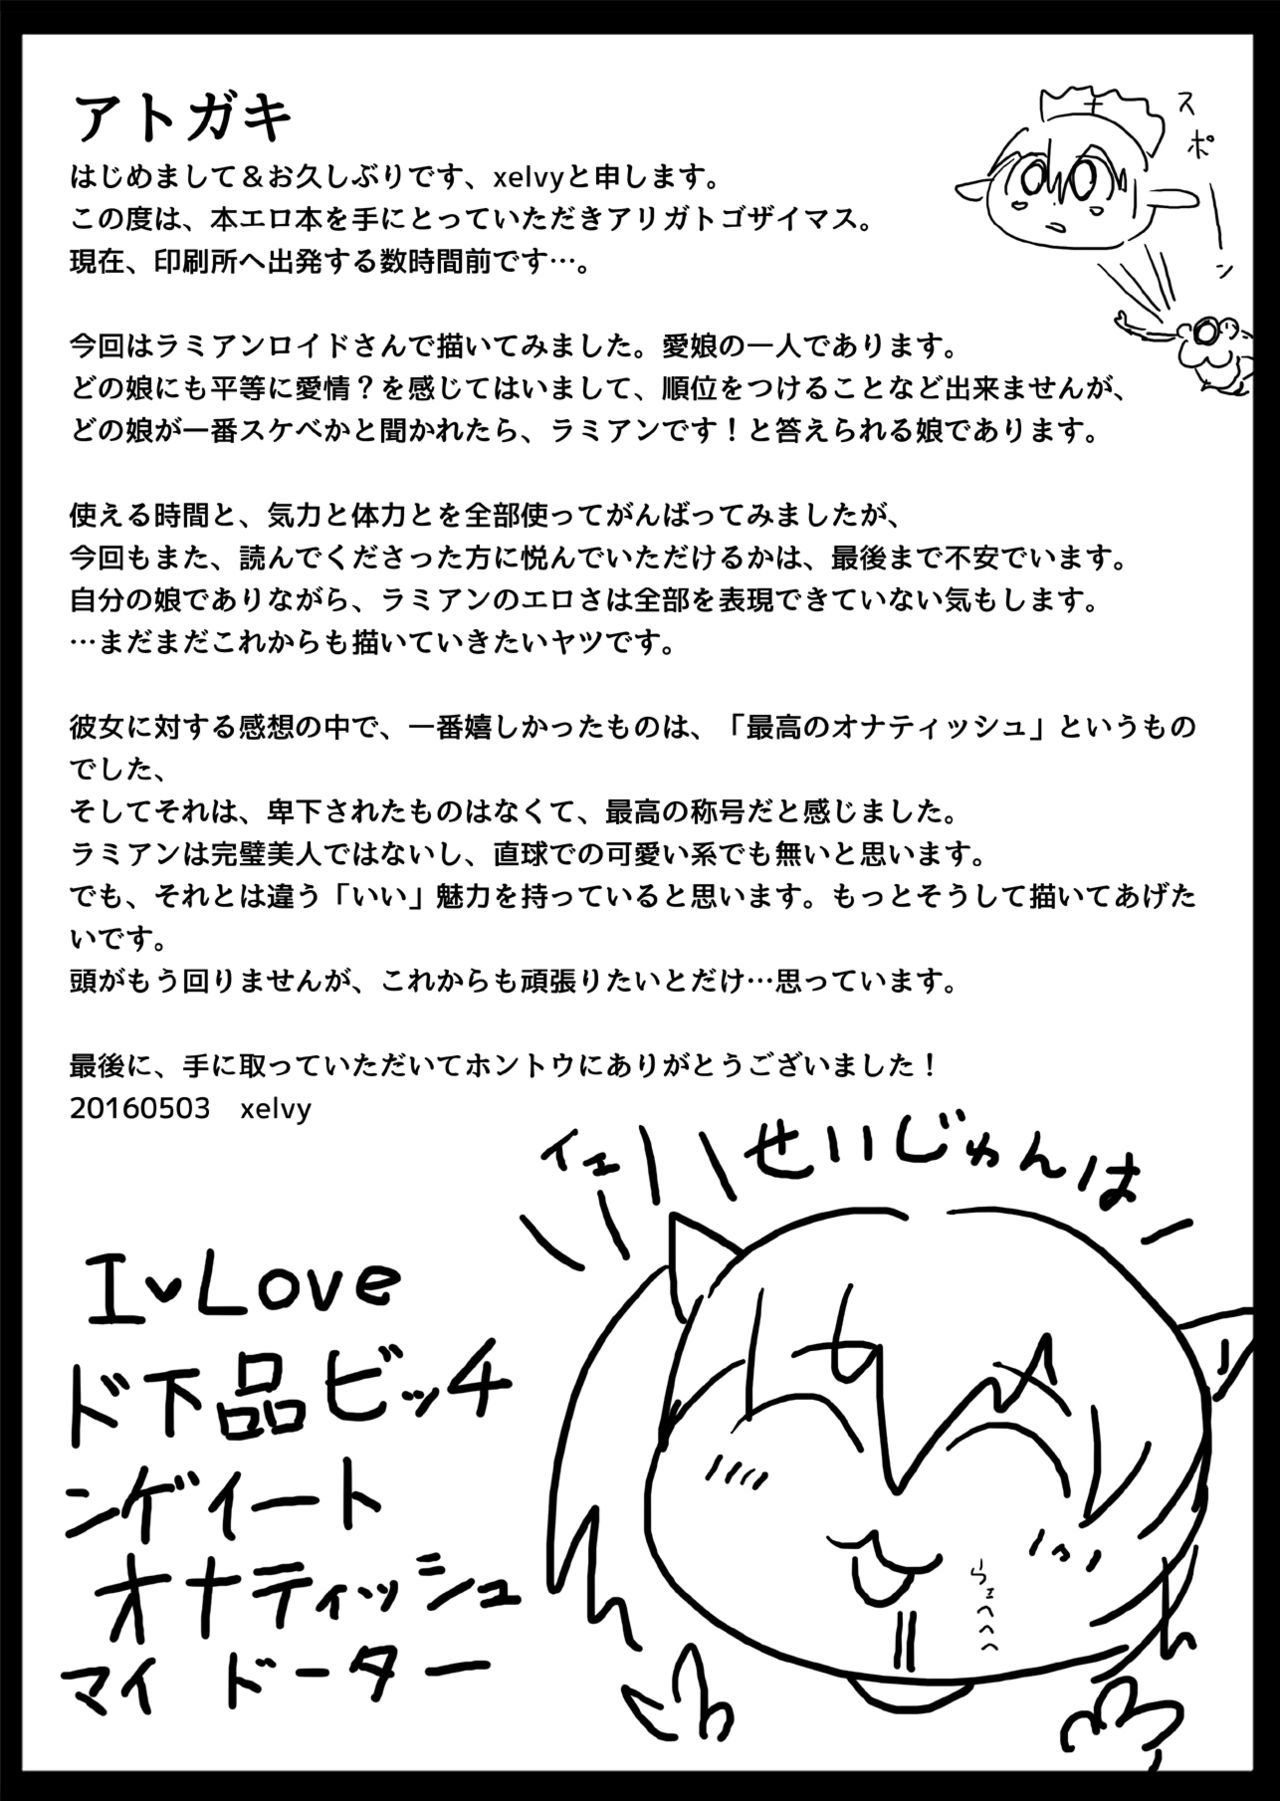 アトガキ
はじめまして＆お久しぶりです、xelvyと申します。
この度は、本エロ本を手にとっていただきアリガトゴザイマス。
現在、印刷所へ出発する数時間前です…。
今回はラミアンロイドさんで描いてみました。愛娘の一人であります。
どの娘にも平等に愛情？を感じてはいまして、順位をつけることなど出来ませんが、
どの娘が一番スケベかと聞かれたら、ラミアンです！と答えられる娘であります。
使える時間と、気力と体力とを全部使ってがんばってみましたが、
今回もまた、読んでくださった方に悦んでいただけるかは、最後まで不安でいます。
自分の娘でありながら、ラミアンのエロさは全部を表現できていない気もします。
…まだまだこれからも描いていきたいヤツです。
彼女に対する感想の中で、一番嬉しかったものは、「最高のオナティッシュ」というもの
でした、
そしてそれは、卑下されたものはなくて、最高の称号だと感じました。
ラミアンは完璧美人ではないし、直球での可愛い系でも無いと思います。
でも、それとは違う「いい」魅力を持っていると思います。もっとそうして描いてあげた
いです。
頭がもう回りませんが、これからも頑張りたいとだけ…思っています。
最後に、手に取っていただいてホントウにありがとうございました！
20160503　xelvy
スポーン
イエー
せいじゅんはー
I♥Love
ド下品ビッチ
ンゲイート
オナティッシュ
マイ ドーター